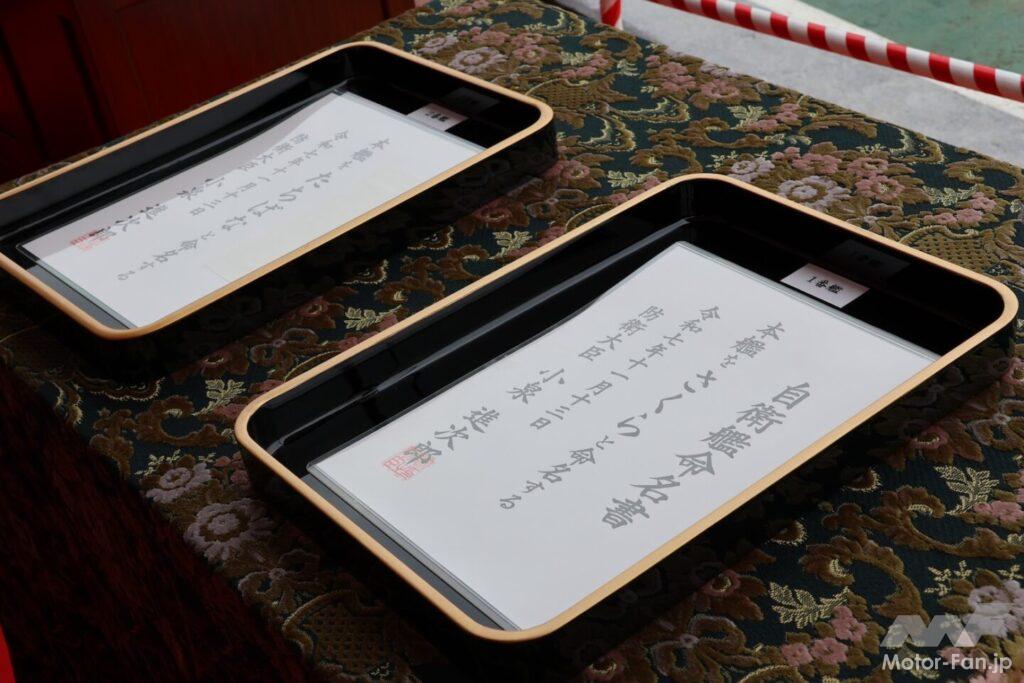 1番艦
自衛艦命名書
本艦を さくら と命名する
令和七年十一月十三日
防衛大臣 小泉 進次郎
本艦を たちばな と命名する
令和七年十一月十三日
防衛大臣 小泉 進次郎
Motor-Fan.jp